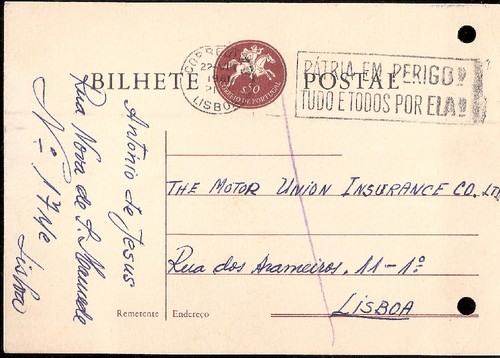 BILHETE POSTAL
CORREIOS
22
LISBOA
$50
CORREIO DE PORTUGAL
PÁTRIA EM PERIGO!
TUDO E TODOS POR ELA!
António de Jesus
Rua Nova de S. Mamede
Nº 17
Lisboa
THE MOTOR UNION INSURANCE CO. LTD
Rua dos Arameiros. 11-1º
LISBOA
Remetente
Endereço